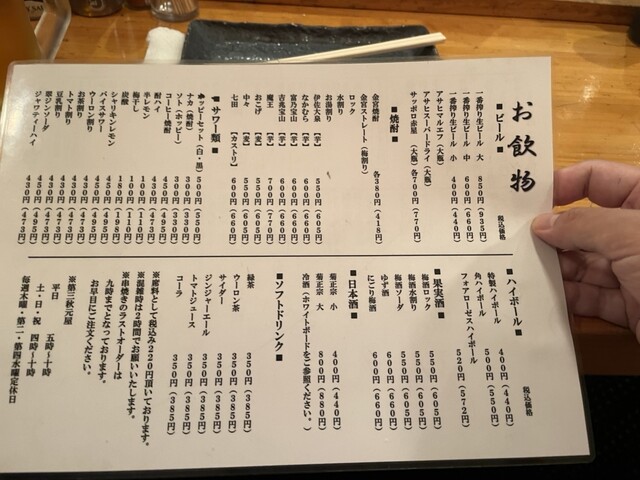 お飲物
税込価格
■ビール■
一番搾り生ビール 大 850円(935円)
一番搾り生ビール 中 600円(660円)
一番搾り生ビール 小 400円(440円)
アサヒマルエフ(大瓶)
アサヒスーパードライ(大瓶)
サッポロ赤星 (大瓶) 各700円(770円)
■焼酎■
金宮焼酎 各380円(418円)
金宮ストレート(梅割り)
ロック
水割り
お湯割り
伊佐大泉 【芋】 550円(605円)
なかむら 【芋】 600円(660円)
富乃宝山 【芋】 600円(660円)
吉兆宝山 【芋】 600円(660円)
魔王 【芋】 700円(770円)
おこげ 【麦】 550円(605円)
中々 【麦】 550円(605円)
七田 【カストリ】 600円(660円)
■サワー類■
ホッピーセット(白・黒) 500円(550円)
ナカ(金宮) 300円(330円)
ソト(ホッピー) 300円(330円)
コーヒー焼酎 450円(495円)
酎ハイ 430円(473円)
半レモン 100円(110円)
梅干し 100円(110円)
炭酸 180円(198円)
シャリキンレモン 450円(495円)
バイスサワー 450円(495円)
ウーロン割り 430円(473円)
お茶割り 430円(473円)
トマト割り 430円(473円)
豆乳割り 430円(473円)
翠ジンソーダ 450円(495円)
ジャワティーハイ 430円(473円)
税込価格
■ハイボール■
特製ハイボール 400円(440円)
角ハイボール 500円(550円)
フォアローゼスハイボール 520円(572円)
■果実酒■
梅酒ロック 550円(605円)
梅酒水割り 550円(605円)
梅酒ソーダ 550円(605円)
ゆず酒 600円(660円)
にごり梅酒 600円(660円)
■日本酒■
菊正宗 小 400円(440円)
菊正宗 大 800円(880円)
冷酒(ホワイトボードをご参照ください。)
■ソフトドリンク■
緑茶 350円(385円)
ウーロン茶 350円(385円)
サイダー 350円(385円)
ジンジャーエール 350円(385円)
トマトジュース 350円(385円)
コーラ 350円(385円)
※席料として税込み220円頂いております。
※混雑時は2時間でお願いいたします。
※串焼きのラストオーダーは
九時までとなっております。
お早目にご注文ください。
※第三秋元屋
平日 五時〜十時
土・日・祝 四時〜十時
毎週木曜・第二・第四水曜定休日